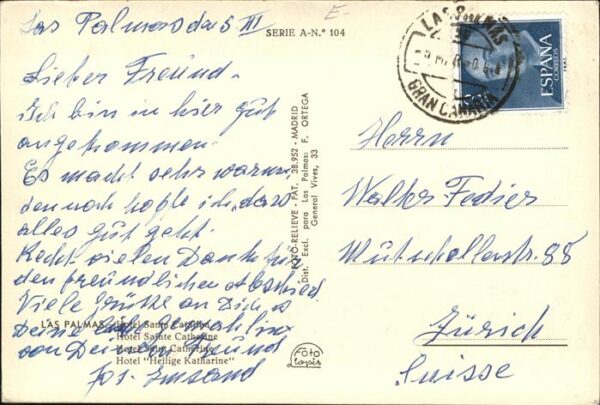 Las Palmas das 5 III
SERIE A-N.º 104
E-
Lieber Freund.
Ich bin in hier gut
angekommen.
Es macht sehr warm
dennoch hoffe ich, dass
alles gut geht.
Recht vielen Dank für
den freundlichen Abschied
Viele Grüsse an Dich &
Deine
von Deinem Freund
Jos.
LAS PALMAS.- Hotel Santa Catalina
Hotel Sainte Catherine
Hotel Saint Catherine
Hotel "Heilige Katharine"
FOTO-RELIEVE - PAT. 38.952 - MADRID
Dist. Excl. para Las Palmas: F. ORTEGA
General Vives, 33
Foto
lopis
LAS PALMAS
GRAN CANARIA
ESPAÑA
CORREOS
Herrn
Walter Fedier
Mutschellenstr. 88
Zürich
Suisse